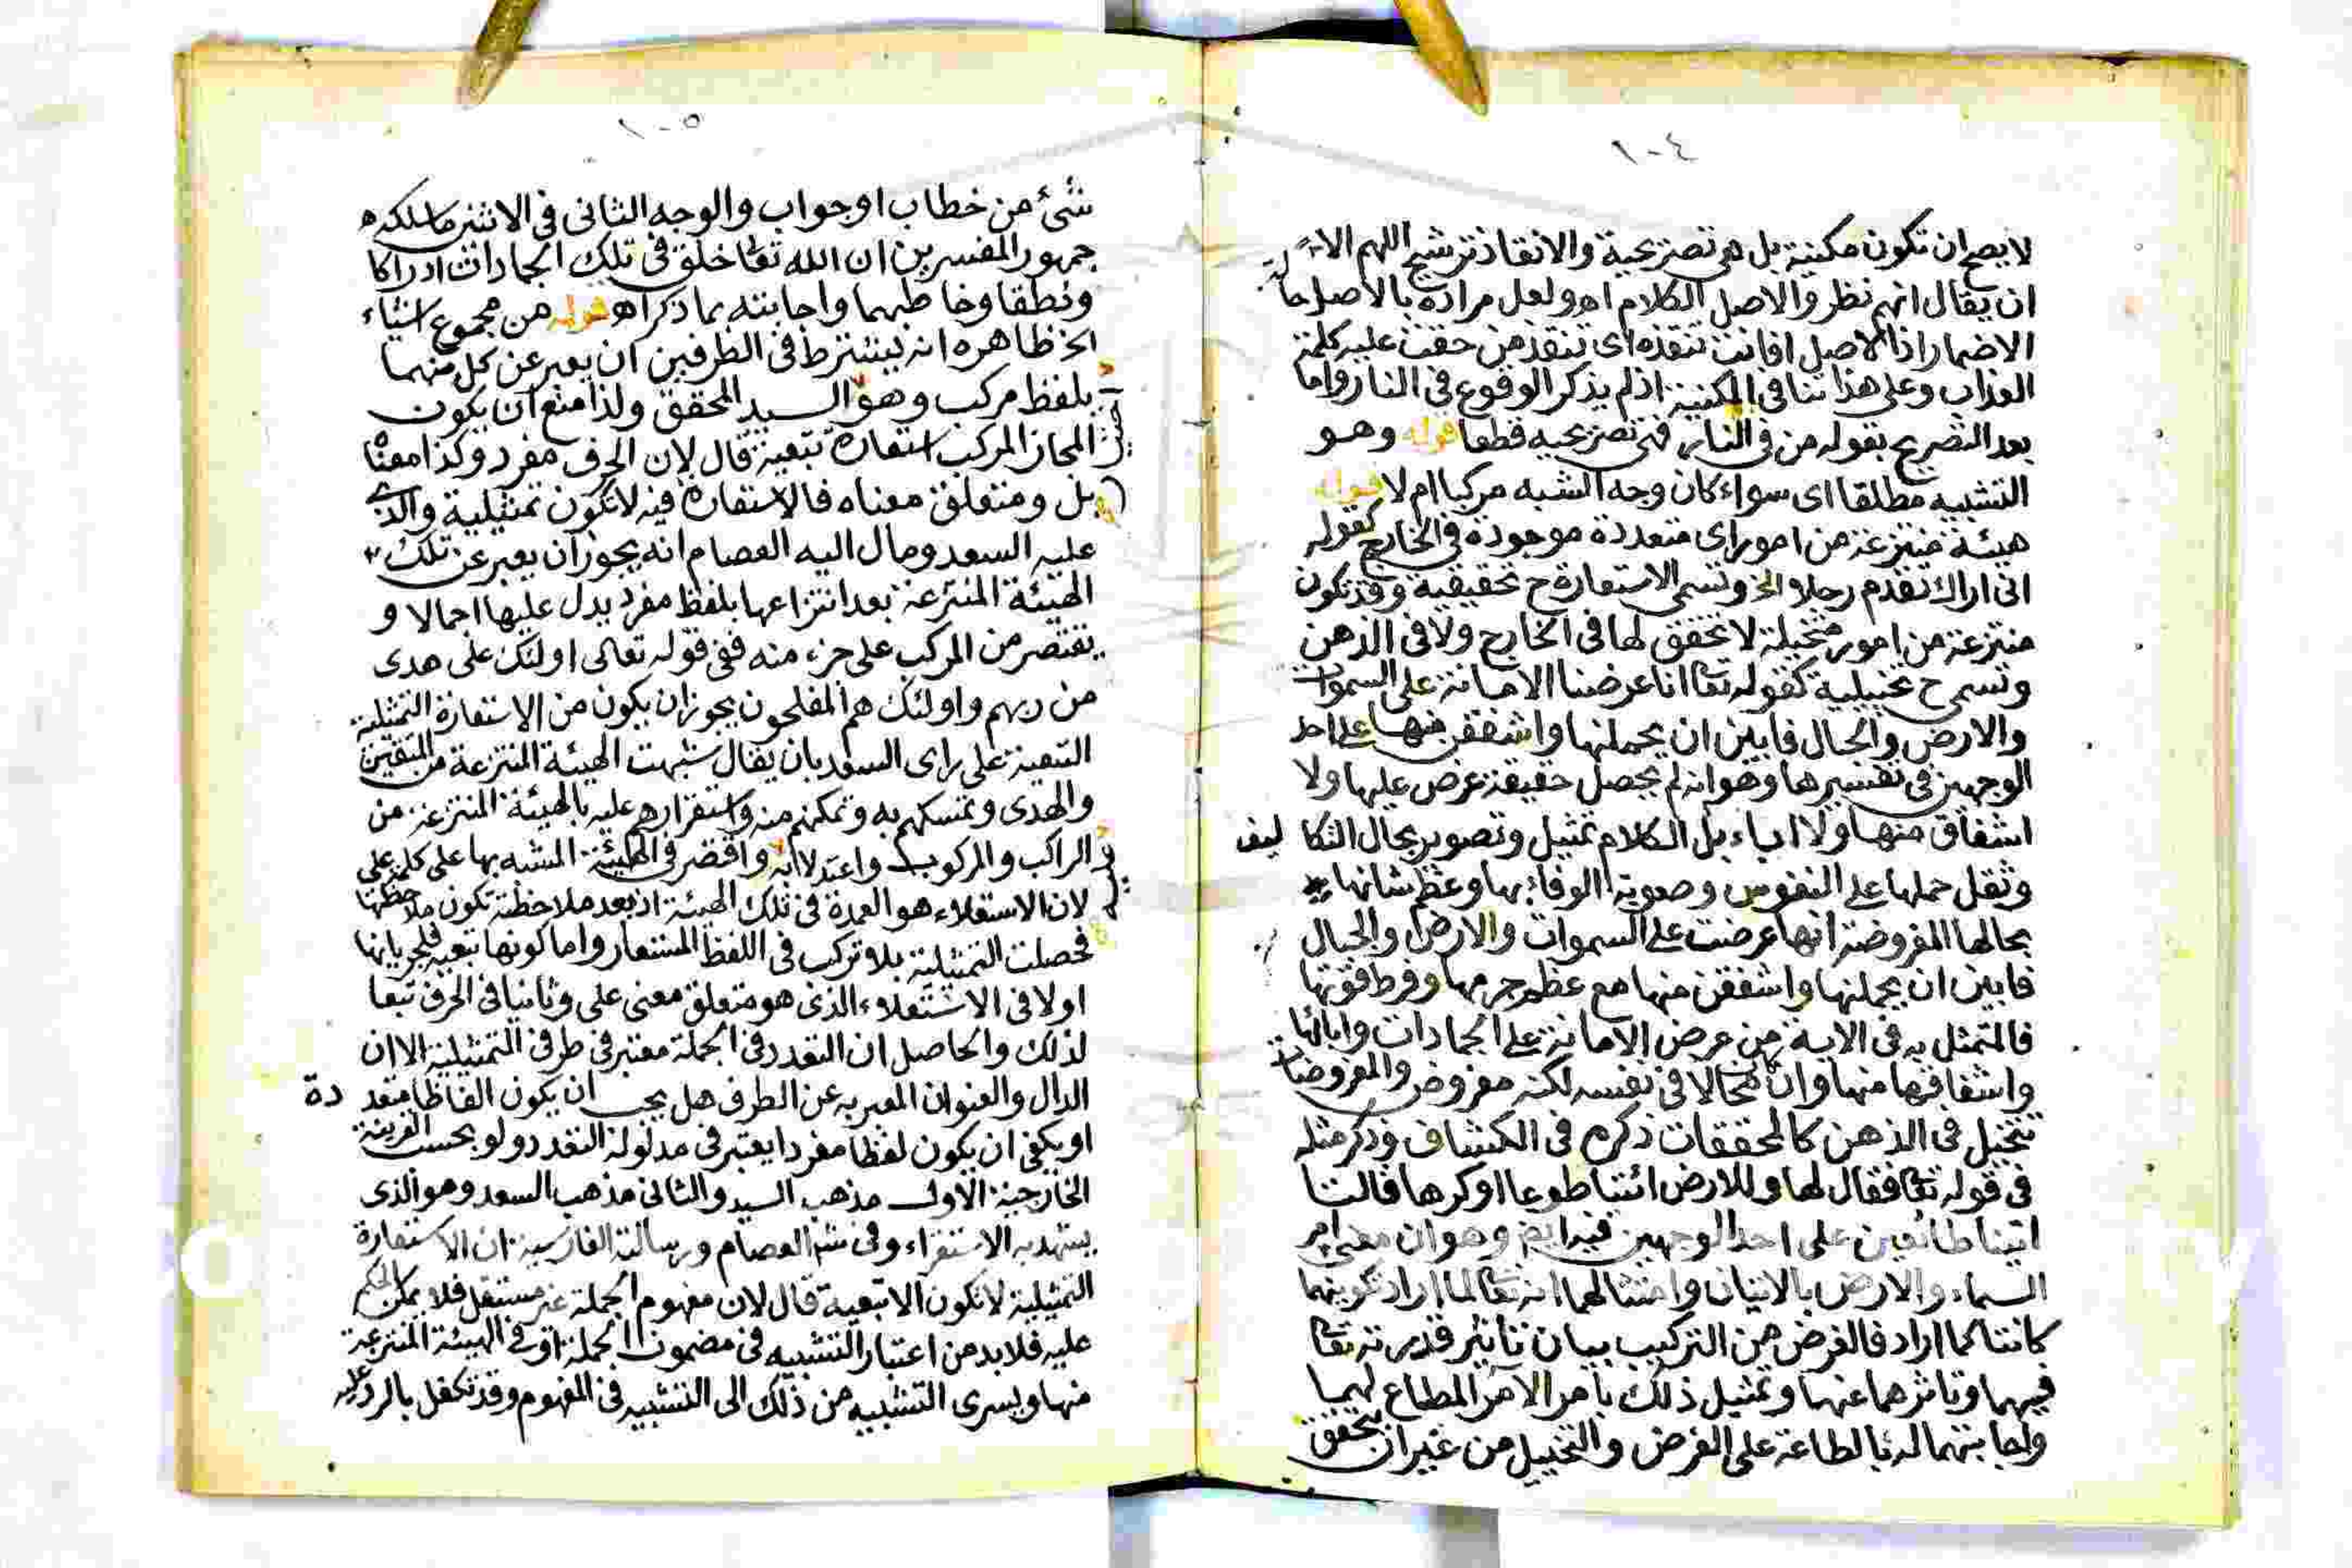 ١٠٤
لا يصح ان تكون مكنية بل هى تصريحية والانقاذ ترشيح اللهم الا
ان يقال انهم نظروا لاصل الكلام اه ولعل مراده بالاصل ما
الاضمار اذ الاصل افانت تنقذه اى تنقذ من حقت عليه كلمة
العذاب وعلى هذا تنافى المكنية اذ لم يذكر الوقوع فى النار واما
بعد التصريح بقوله من فى النار فهى تصريحيه قطعا قوله وهو
التشبيه مطلقا اى سواء كان وجه الشبه مركبا ام لا قوله
هيئة منتزعة من امور اى متعددة موجودة فى الخارج كقوله
انى اراك تقدم رجلا الخ وتسمى الاستعارة ح تحقيقية وقد تكون
منتزعة من امور متخيلة لا تحقق لها فى الخارج ولا فى الذهن
وتسمى ح تخييلية كقوله تعا انا عرضنا الامانة على السموات
والارض والجبال فابين ان يحملنها واشفقن منها على احد
الوجهين فى تفسيرها وهو انه لم يحصل حقيقة عرض عليها ولا
اشفاق منها ولا اباء بل الكلام تمثيل وتصوير بحال التكا ليف
وثقل حملها على النفوس وصعوبة الوفاء بها وعظم شانها
بحالها المفروضة انها عرضت على السموات والارض والجبال
فابين ان يحملنها واشفقن منها مع عظم جرمها وفرط قوتها
فالمتمثل به فى الاية من عرض الامانة على الجمادات وابائها
واشفاقها منها وان كان محالا فى نفسه لكنه مفروض والمفروضات
تتخيل فى الذهن كالمحققات ذكره فى الكشاف وذكر مثله
فى قوله تعا فقال لها وللارض ائتيا طوعا او كرها قالتا
اتينا طائعين على احد الوجهين فيه ايضا وهو ان معنى امر
السماء والارض بالاتيان وامتثالهما انه تعالى لما اراد تكوينهما
كانتا كما اراد فالغرض من التركيب بيان تاثير قدرته تعا
فيهما وتاثرهما عنها وتمثيل ذلك بامر الآمر المطاع لهما
واجابتهما له بالطاعة على الفرض والتخييل من غير ان يتحقق
١٠٥
شئ من خطاب او جواب والوجه الثانى فى الاثنين ما سلكه
جمهور المفسرين ان الله تعا خلق فى تلك الجمادات ادراكا
ونطقا وخاطبهما واجابته بما ذكر اه قوله من مجموع اشياء
الخ ظاهره انه يشترط فى الطرفين ان يعبر عن كل منهما
بلفظ مركب وهو السيد المحقق ولذا منع ان يكون
المجاز المركب استعارة تبعية قال لان الحرف مفرد وكذا معناه
بل ومتعلق معناه فالاستعارة فيه لا تكون تمثيلية والذى
عليه السعد ومال اليه العصام انه يجوز ان يعبر عن تلك
الهيئة المنتزعة بعد انتزاعها بلفظ مفرد يدل عليها اجمالا و
يقتصر من المركب على جزء منه ففى قوله تعالى اولئك على هدى
من ربهم واولئك هم المفلحون يجوز ان يكون من الاستعارة التمثيلية
التبعية على راى السعد بان يقال شبهت الهيئة المنتزعة من المتقين
والهدى وتمسكهم به وتمكنهم منه واستقرارهم عليه بالهيئة المنتزعة من
الراكب والمركوب واعتدلاله واقتصر فى الهيئة المشبه بها على كلمة على
لان الاستعلاء هو العمدة فى تلك الهيئة اذ بعد ملاحظته تكون ملاحظتها
فحصلت التمثيلية بلا تركب فى اللفظ المستعار واما كونها تبعية فلجريانها
اولا فى الاستعلاء الذى هو متعلق معنى على وثانيا فى الحرف تبعا
لذلك والحاصل ان التعدد فى الجملة معتبر فى طرفى التمثيلية الا ان
الدال والعنوان المعبر به عن الطرف هل يجب ان يكون الفاظا متعد دة
او يكفى ان يكون لفظا مفردا يعتبر فى مدلوله التعدد ولو بحسب القرينة
الخارجية الاول مذهب السيد والثانى مذهب السعد وهو الذى
يشهد به الاستقراء وفى شرح العصام ورسالته الفارسية ان الاستعارة
التمثيلية لا تكون الا تبعية قال لان مفهوم الجملة غير مستقل فلا يمكن الحكم
عليه فلا بد من اعتبار التشبيه فى مضمون الجملة او فى الهيئة المنتزعة
منها ويسرى التشبيه من ذلك الى التشبيه فى المفهوم وقد تكفل بالرد عليه